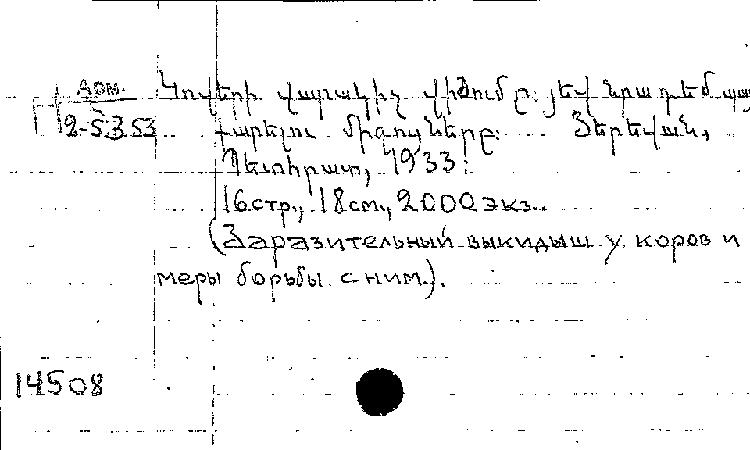 арм.
2-5353
Կովերի վարակիչ վիժումը յեվ նրա դեմ պայ
քարելու միջոցները: Յերեվան,
Պետհրատ, 1933:
16 стр., 18 см., 2000 экз.
(Заразительный выкидыш у коров и
меры борьбы с ним.).
14508